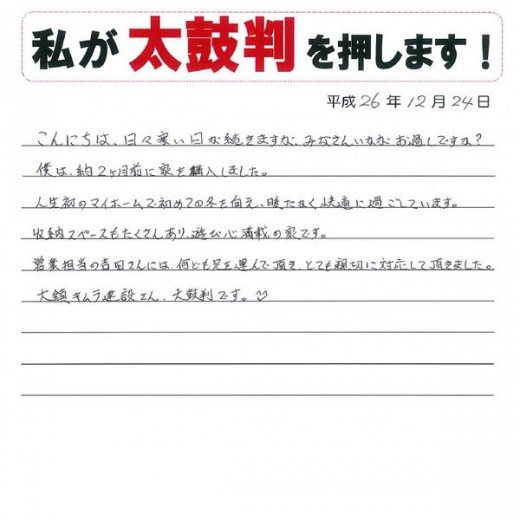 私が太鼓判を押します！
平成26年12月24日
こんにちは、日々寒い日が続きますが、みなさんいかがお過しですか？
僕は、約2ヶ月前に家を購入しました。
人生初のマイホームで初めての冬を向え、暖たかく快適に過ごしています。
収納スペースもたくさんあり、遊び心満載の家です。
営業担当の吉田さんには、何ども足を運んで頂き、とても親切に対応して頂きました。
大鎮キムラ建設さん、太鼓判です。